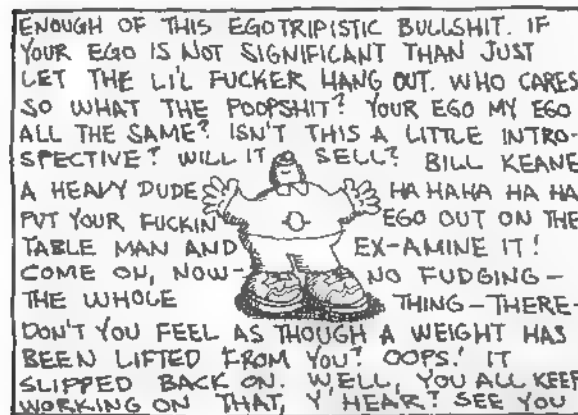 ENOUGH OF THIS EGOTRIPISTIC BULLSHIT. IF
YOUR EGO IS NOT SIGNIFICANT THAN JUST
LET THE LI'L FUCKER HANG OUT. WHO CARES
SO WHAT THE POOPSHIT? YOUR EGO MY EGO
ALL THE SAME? ISN'T THIS A LITTLE INTRO-
SPECTIVE? WILL IT SELL? BILL KEANE
A HEAVY DUDE HA HAHA HA HA
PUT YOUR FUCKIN EGO OUT ON THE
TABLE MAN AND EX-AMINE IT!
COME ON, NOW- NO FUDGING-
THE WHOLE THING-THERE-
DON'T YOU FEEL AS THOUGH A WEIGHT HAS
BEEN LIFTED FROM YOU? OOPS! IT
SLIPPED BACK ON. WELL, YOU ALL KEEP
WORKING ON THAT, Y'HEAR? SEE YOU